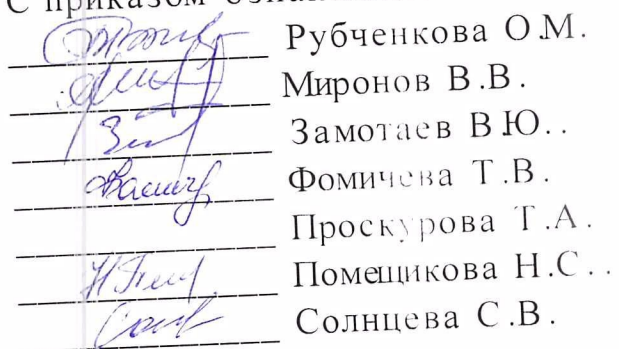 С приказом озна
Рубченкова О.М.
Миронов В.В.
Замотаев В.Ю..
Фомичева Т.В.
Проскурова Т.А.
Помещикова Н.С..
Солнцева С.В.